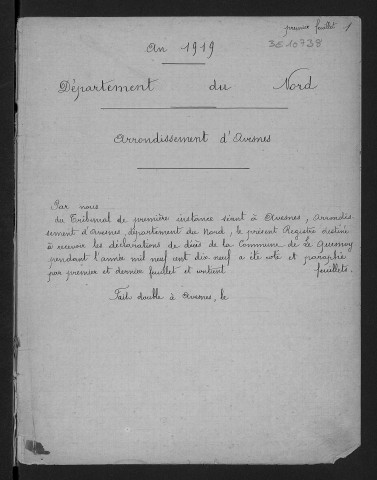 premier feuillet 1
An 1919
3E10739
Département du Nord
Arrondissement d'Avesnes
Par nous
du Tribunal de première instance séant à Avesnes, Arrondis-
sement d'Avesnes, département du Nord, le présent Registre destiné
à recevoir les déclarations de décès de la Commune de Le Quesnoy
pendant l'année mil neuf cent dix neuf a été coté et paraphé
par premier et dernier feuillet et contient feuillets.
Fait double à Avesnes, le